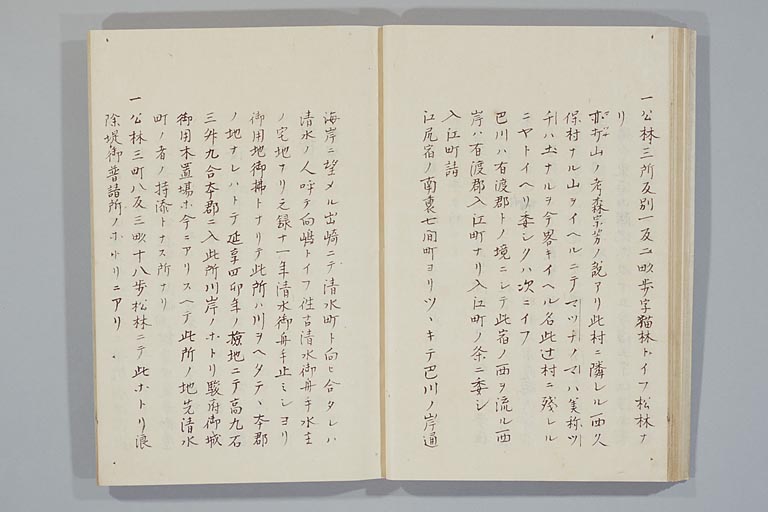 一公林三所反別一反二畝歩字猫林トイフ松林ナ
リ
山ノ考森宗芳ノ説アリ此村ニ隣レル西久
保村ナル山ヲイヘルニテマツチノマハ美称ツ
チハ土ナルヲ今畧キイヘル名此辻村ニ残レル
ニヤトイヘリ委シクハ次ニイフ
巴川ハ有渡郡トノ境ニシテ此宿ノ西ヲ流ル西
岸ハ有渡郡入江町ナリ入江町ノ条ニ委シ
入江町請
江尻宿ノ南裏七間町ヨリツヽキテ巴川ノ岸通
海岸ニ望メル出崎ニテ清水町ト向ヒ合タレハ
清水ノ人呼テ向嶋トイフ往古清水御舟手水主
ノ宅地ナリ元録十一年清水御舟手止ミシヨリ
御用地御拂トナリテ此所ハ川ヲヘタテヽ本郡
ノ地ナレハトテ延享四卯年ノ検地ニテ高九石
三斗九合本郡ニ入此所川岸ノホトリ駿府御城
御用木置場ホ今ニアリスヘテ此所ノ地先清水
町ノ者ノ持添トナス所ナリ
一公林三町八反三畝十八歩松林ニテ此ホトリ浪
除堤御普請所ノホトリニアリ